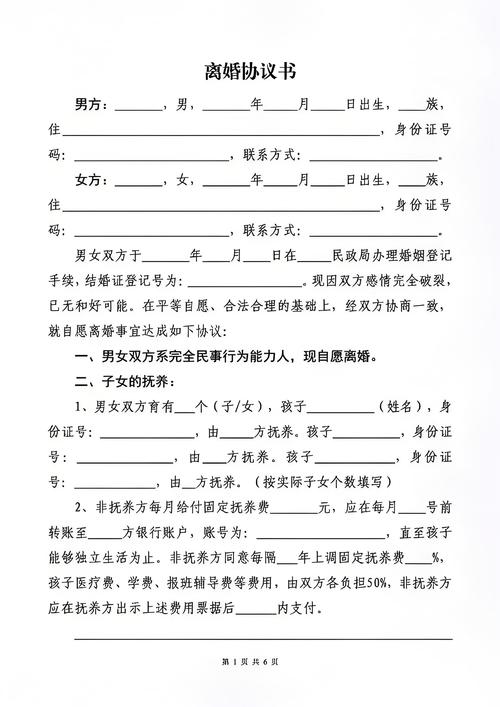 离婚协议书
男方：______，男，______年____月____日出生，___族，
住________________________________________，身份证号
码：____________________，联系方式：________________。
女方：______，女，______年____月____日出生，___族，
住________________________________________，身份证号
码：____________________，联系方式：________________。
男女双方于_______年_____月____日在_____民政局办理婚姻登记
手续，结婚证登记号为：_______________。现因双方感情完全破裂，
已无和好可能。在平等自愿、合法合理的基础上，经双方协商一致，
就自愿离婚事宜达成如下协议：
一、男女双方系完全民事行为能力人，现自愿离婚。
二、子女的抚养：
1、男女双方育有___个（子/女），孩子_________（姓名），身
份证号：_____________，由_____方抚养。孩子_________，身份证
号：_____________，由___方抚养。孩子__________，身份证
号：_____________，由__方抚养。（按实际子女个数填写）
2、非抚养方每月给付固定抚养费______元，应在每月____号前
转账至_____方银行账户，账号为：________________，直至孩子
能够独立生活为止。非抚养方同意每隔___年上调固定抚养费____%，
孩子医疗费、学费、报班辅导费等费用，由双方各负担50%，非抚养方
应在抚养方出示上述费用票据后_____内支付。
第 1 页 共 6 页